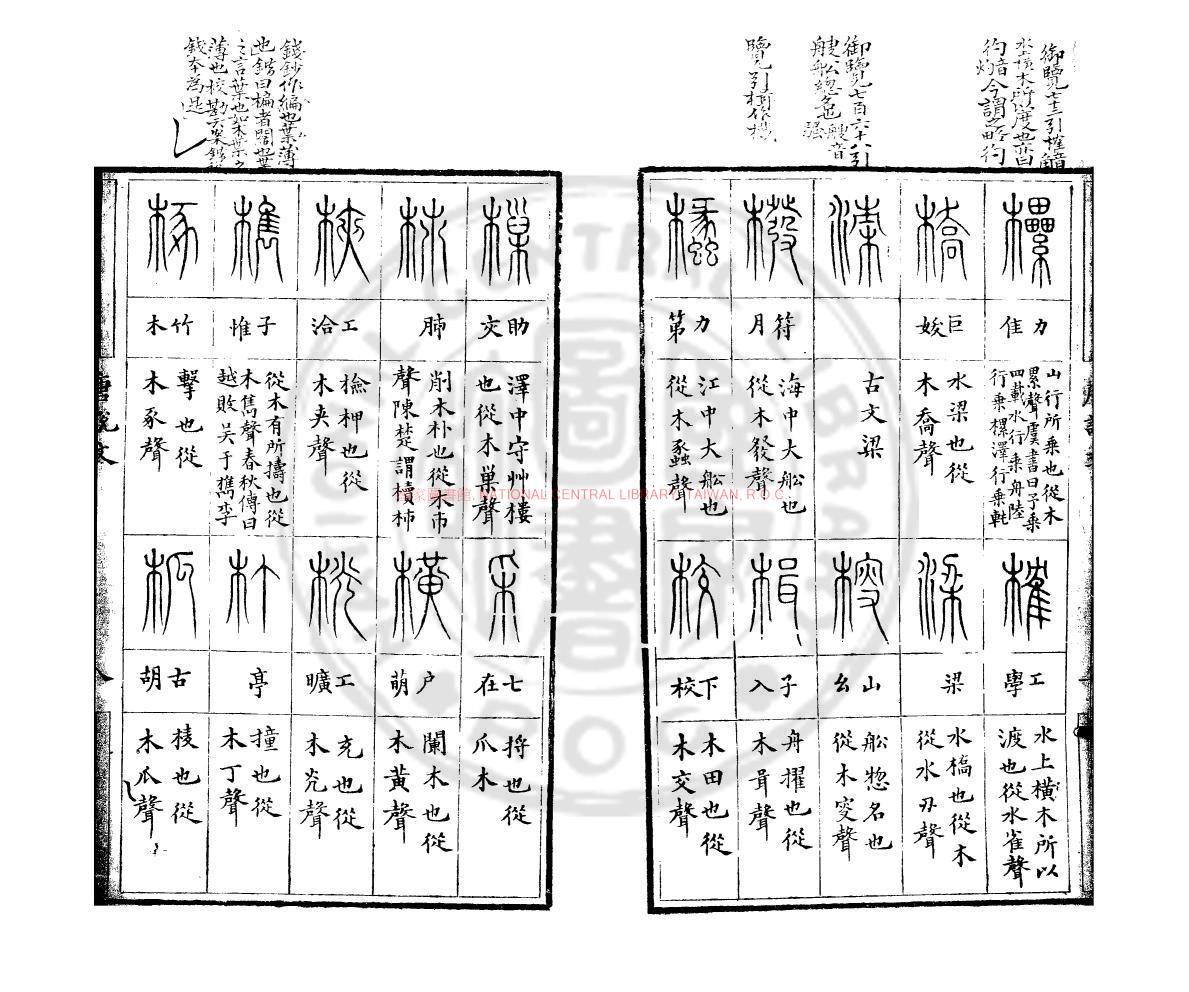 御覽七十三引榷鐕
水上橫木所以度也音
彴音灼今謂之略彴
御覽七百六十八引
艘船總名也艘音
騷
覽引楫作檝
錢鈔作編也葉薄
也鍇曰楄者闊也葉
之言葉也如木葉之
薄也校勘云案鍇
錢本爲是
欙
力隹
山行所乘也從木
纍聲虞書曰予乘
四載水行乘舟陸
行乘欙澤行乘軏
榷
工學
水上橫木所以
渡也從水雀聲
橋
巨㛐
水梁也從
木喬聲
梁
梁
水橋也從木
從水刅聲
古文梁
㮴
山幺
船惣名也
從木叜聲
橃
符月
海中大船也
從木發聲
楫
子入
舟擢也從
木咠聲
欚
力第
江中大船也
從木蠡聲
校
下校
木田也從
木交聲
樔
助交
澤中守艸樓
也從木巢聲
采
七在
捋也從
爪木
柿
肺
削木朴也從木巿
聲陳楚謂櫝柿
橫
户萌
闌木也從
木黃聲
梜
工洽
檢柙也從
木夾聲
桄
工曠
充也從
木炗聲
檇
子惟
從木有所擣也從
木雋聲春秋傳曰
越敗吳于檇李
朾
亭
撞也從
木丁聲
椓
竹木
擊也從
木豖聲
柧
古胡
棱也從
木瓜聲
唐說文
國家圖書館, NATIONAL CENTRAL LIBRARY, TAIWAN, R.O.C.